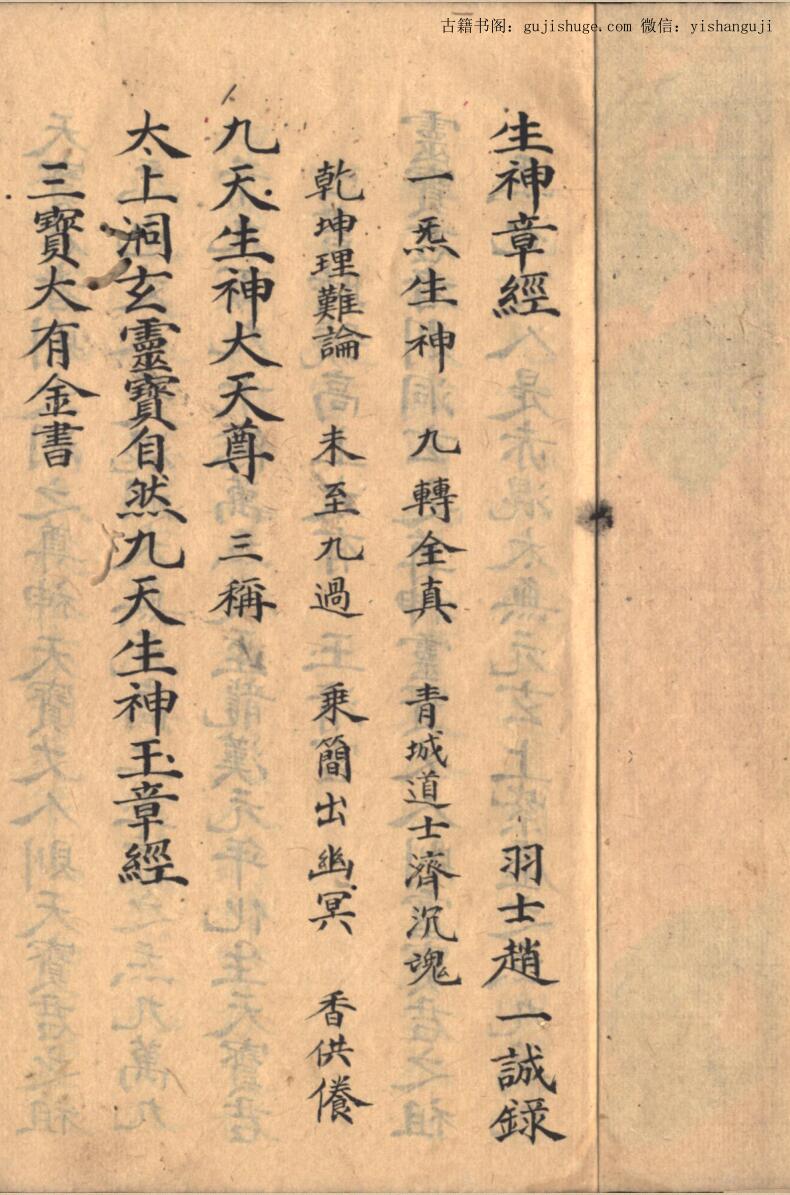 古籍书阁：gujishuge.com 微信：yishanguji
生神章經 羽士趙一誠錄
一炁生神 九轉全真 青城道士濟沉魂
乾坤理難論 未至九過 乘簡出幽冥 香供養
九天生神大天尊 三稱
太上洞玄靈寳自然九天生神玉章經
三寳大有金書